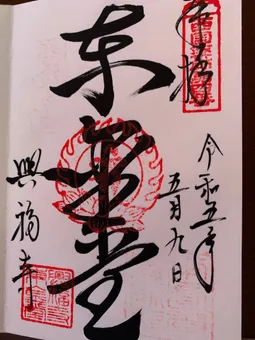 奉拝
令和五年
五月九日
東金堂
興福寺